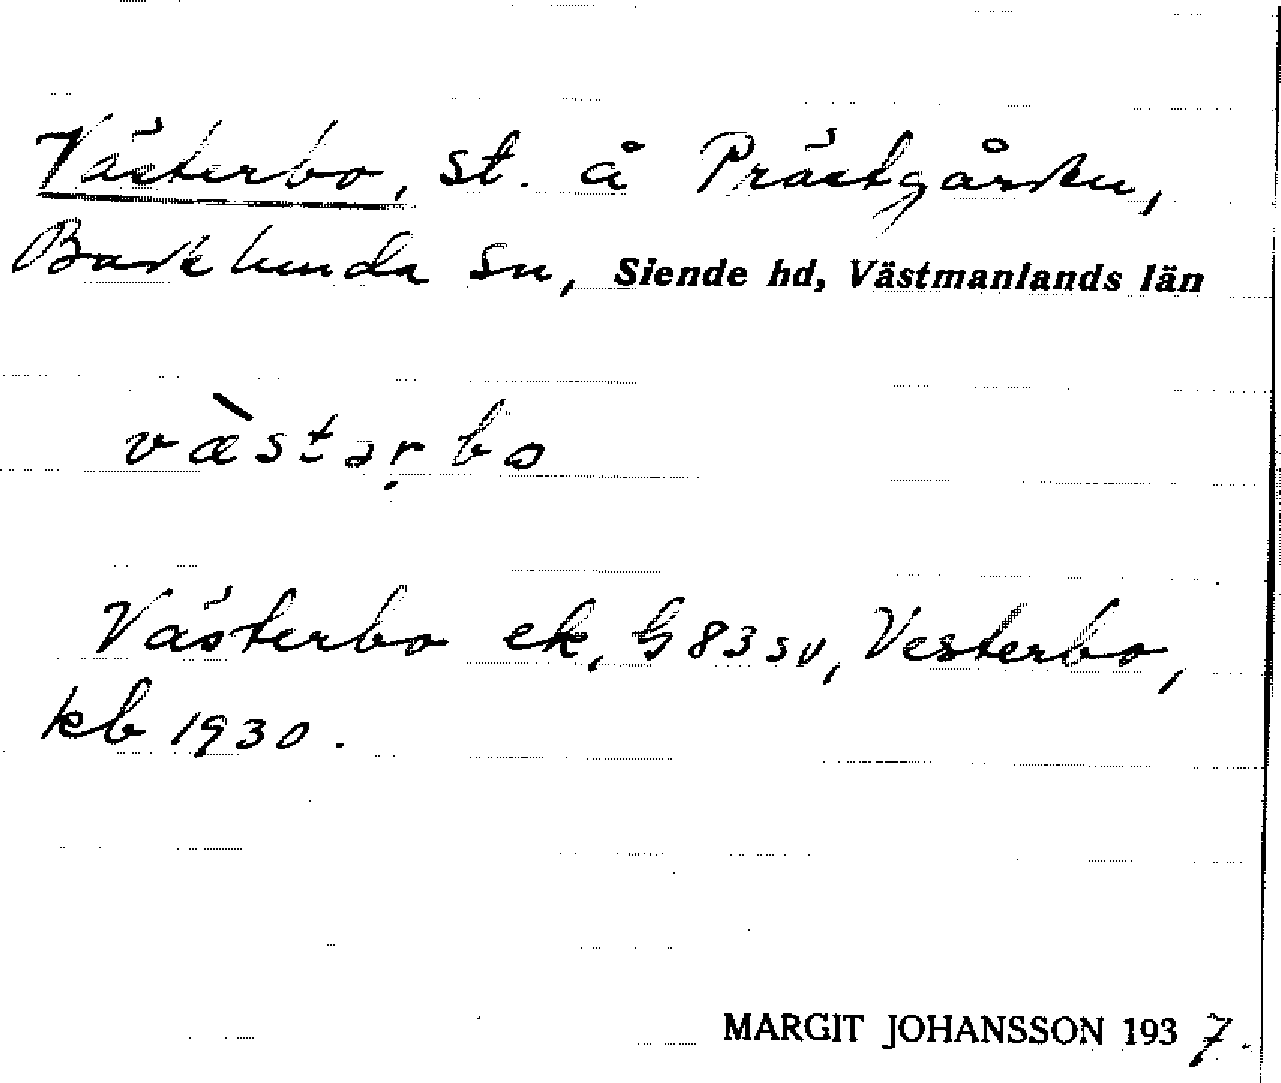 Västerbo, st. å Prästgården,
Badelunda sn, Siende hd, Västmanlands län
væ̀stəṛbo
Västerbo ek, G 83 sv, Vesterbo,
kb 1930.
MARGIT JOHANSSON 1937.